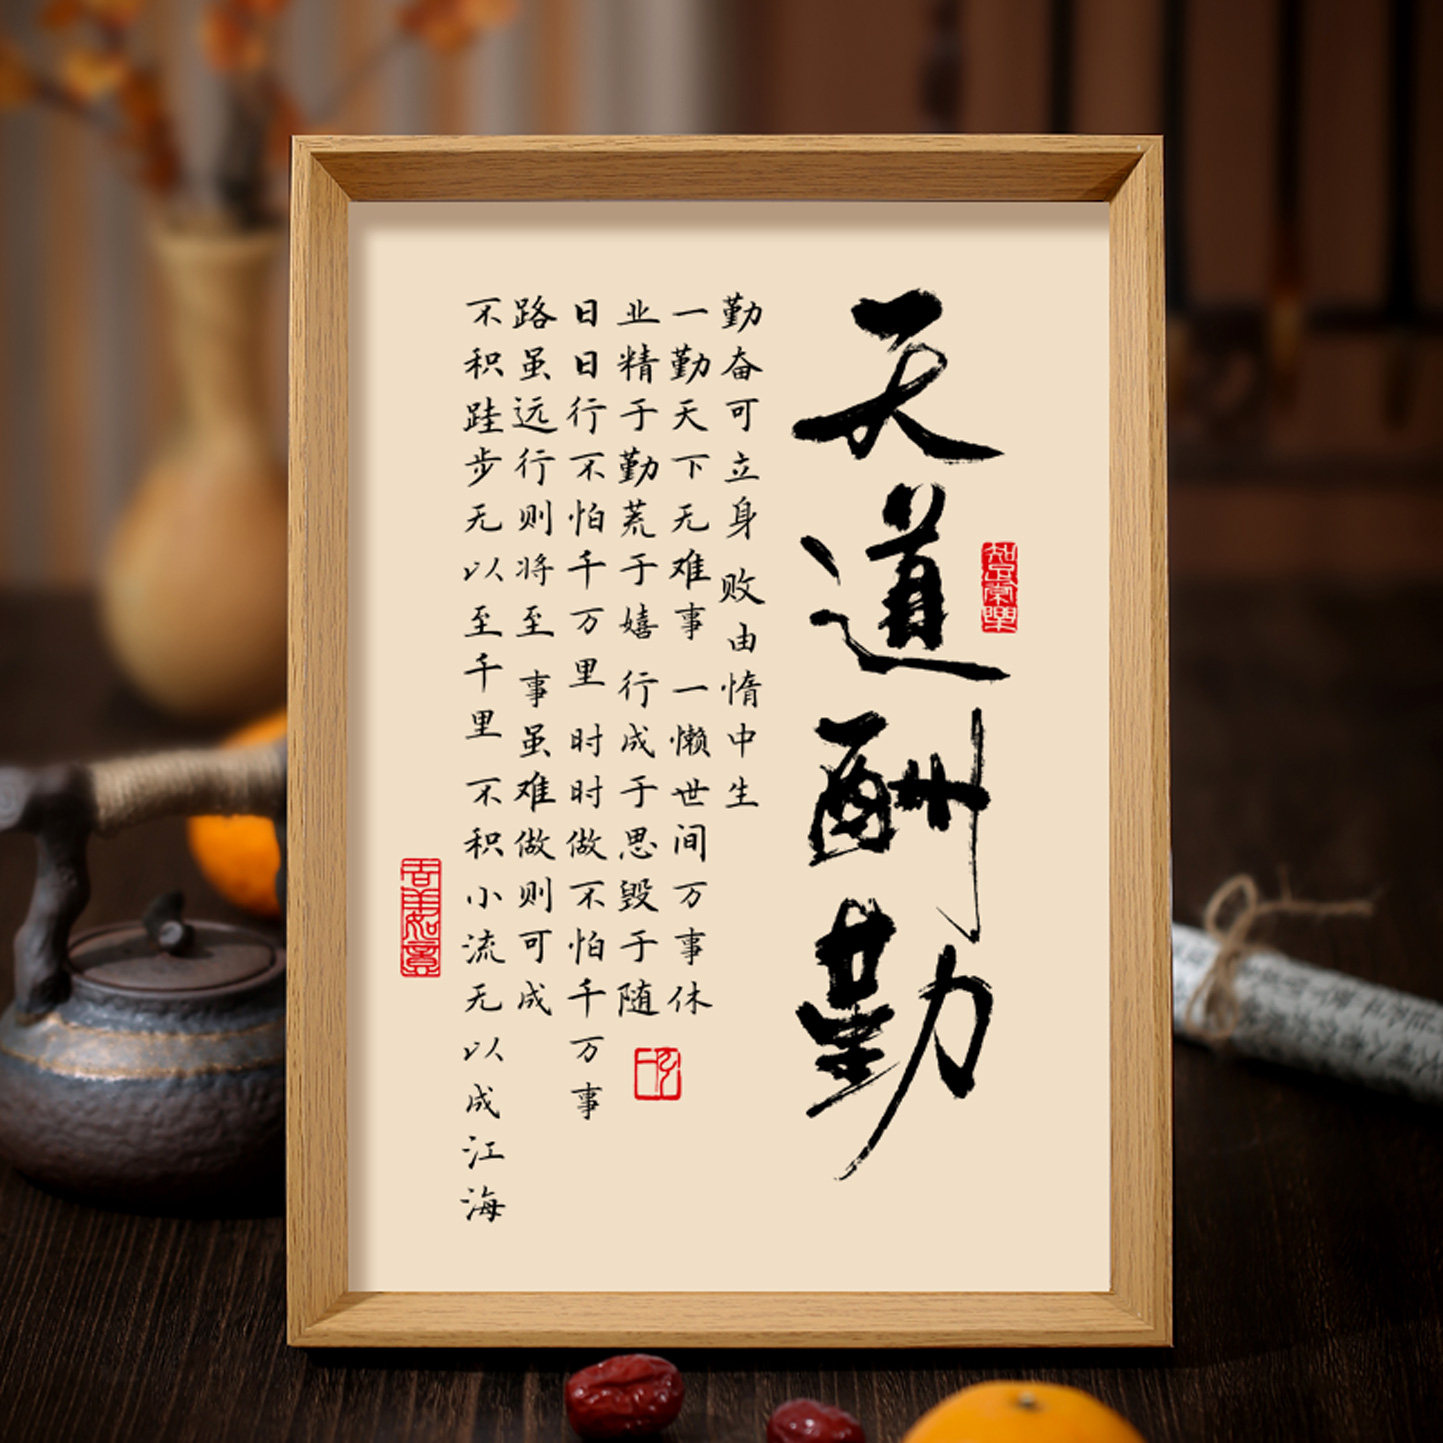 天道酬勤
知足常樂
勤奋可立身 败由惰中生
一勤天下无难事 一懒世间万事休
业精于勤荒于嬉 行成于思毁于随
日日行不怕千万里 时时做不怕千万事
路虽远行则将至 事虽难做则可成
不积跬步无以至千里 不积小流无以成江海
吉羊如意